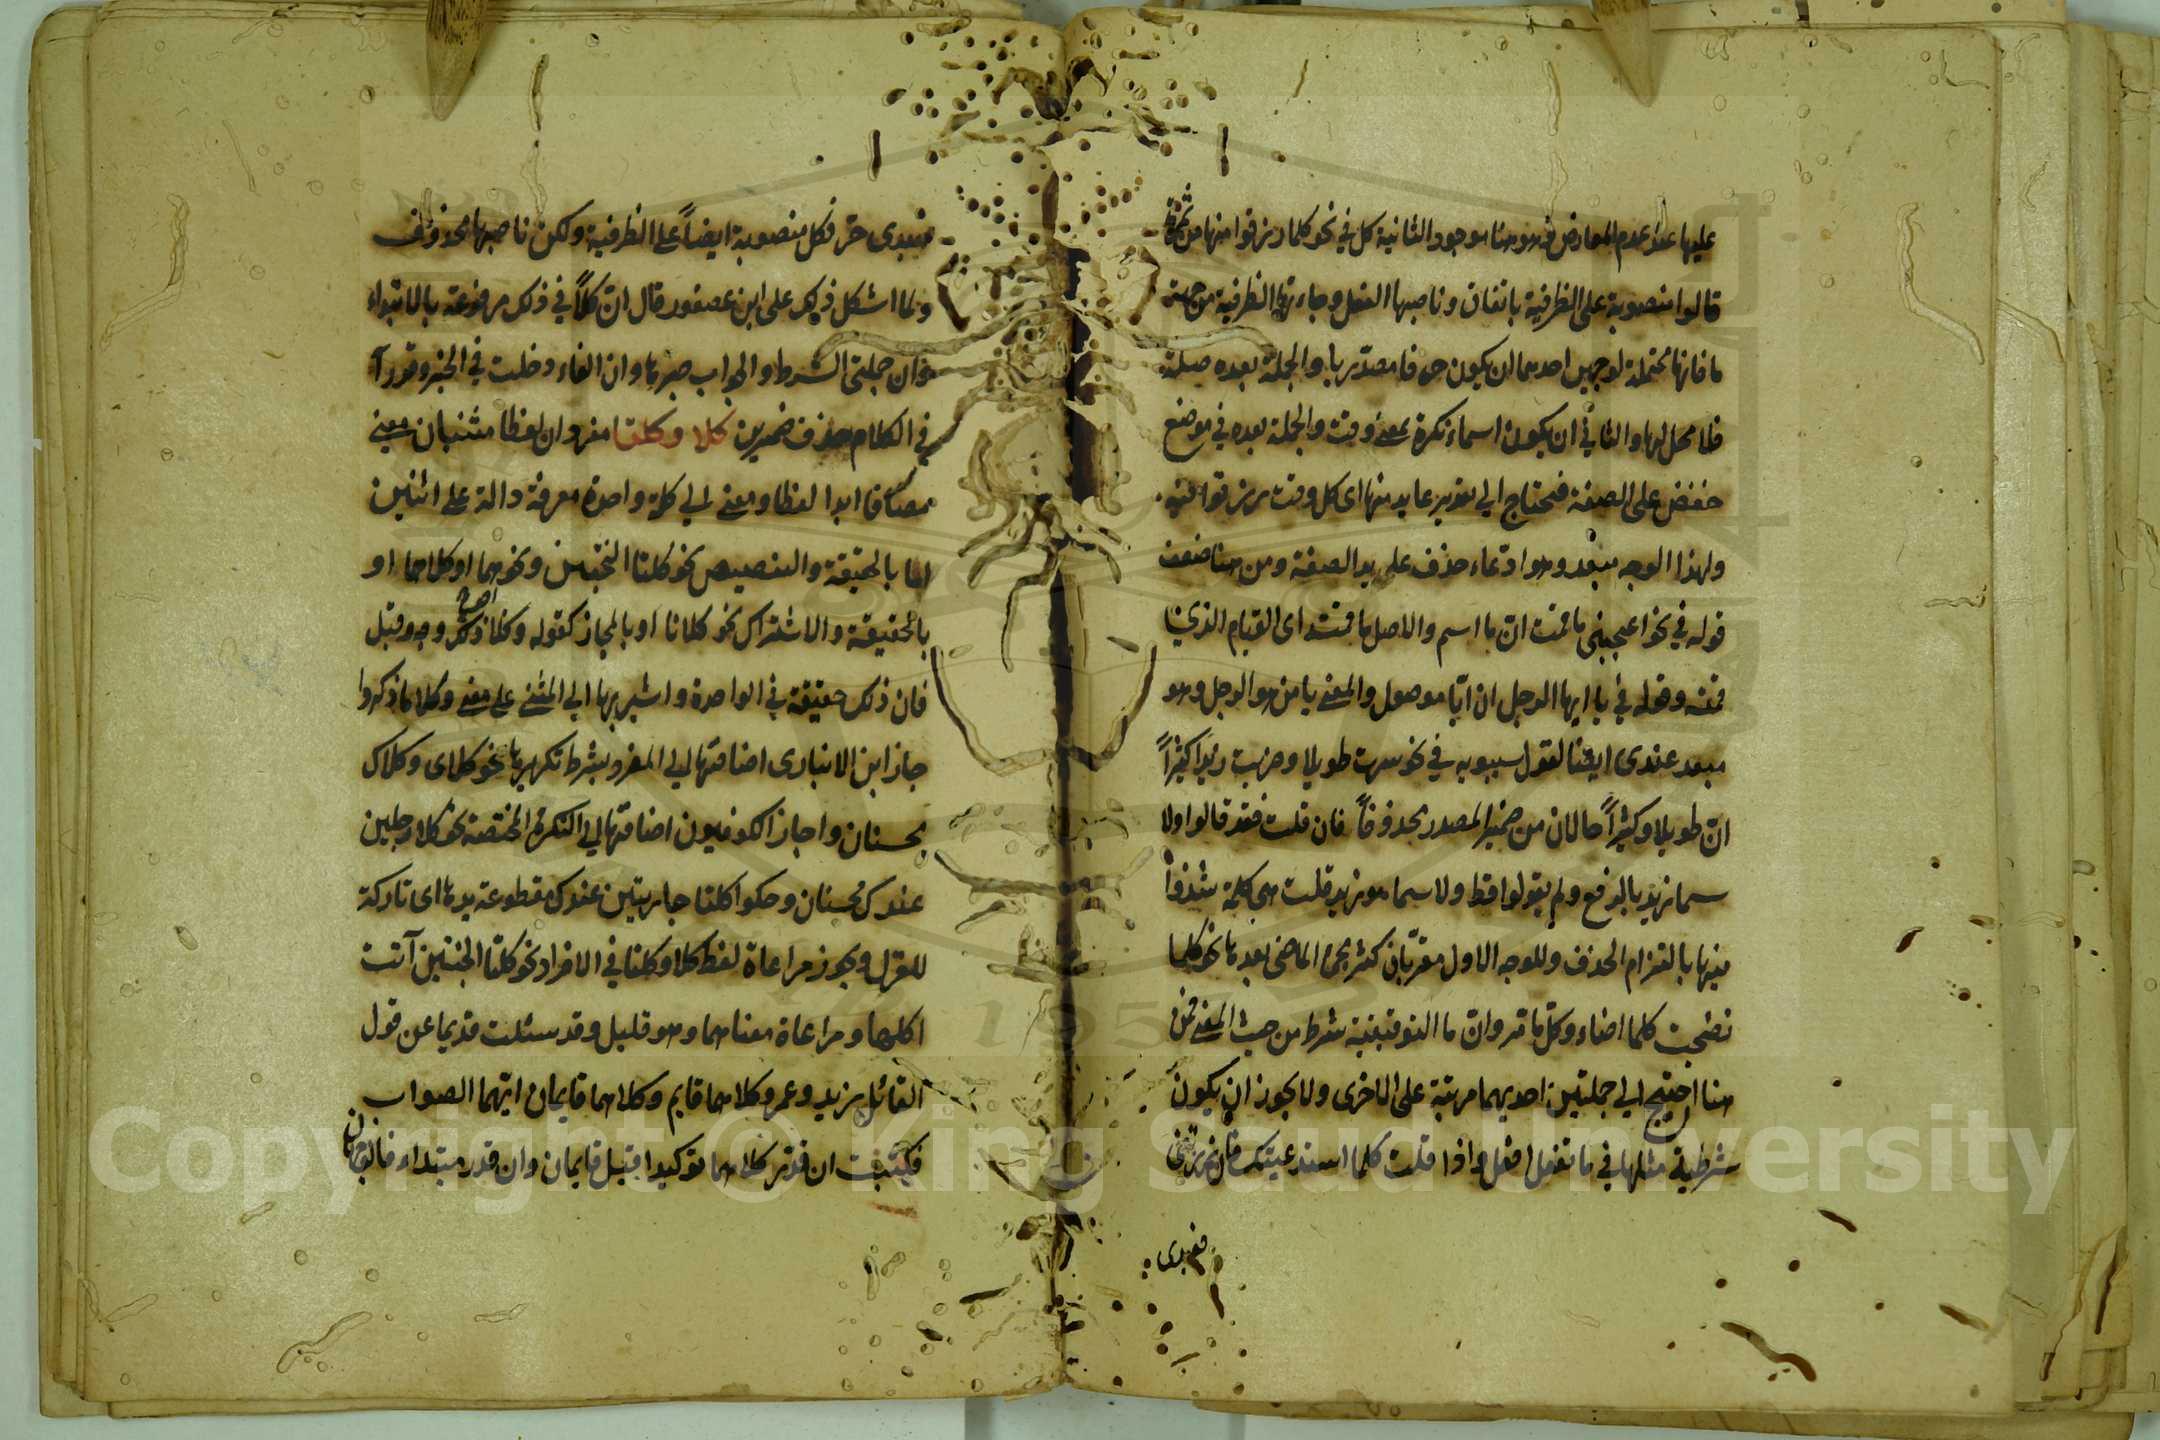 عليها عند عدم المعارض فهو هنا موجود الثانية كل في نحو كلما رزقوا منها من ثمرة
قالوا منصوبة على الظرفية باتفاق وناصبها الفعل وجاءتها الظرفية من جهة
ما فانها محتملة لوجهين احدهما ان يكون حرفا مصدريا والجملة بعده صلة
فلا محل لها والثاني ان يكون اسماء نكرة بمعنى وقت والجملة بعده في موضع
خفض على الصفة فتحتاج الى تقدير عايد منها اى كل وقت رزقوا فيه
ولهذا الوجه مبعد وهو ادعاء حذف عايد الصفة ومن هنا ضعف
قوله في نحو اعجبني ما قمت انّ ما اسم والاصل ما قمته اى القيام الذي
قمته وقوله في يا ايها الرجل ان ايّا موصول والمعنى يا من هو الرجل وهو
مبعد عندى ايضا لقول سيبويه في نحو سرت طويلا وضربت زيدا كثيراً
انّ طويلا وكثيراً حالان من ضمير المصدر محذوفاً فان قلت فقد قالوا ولا
سيما زيد بالرفع ولم يقولوا قط ولا سيما هو زيد قلت هى كلمة شذوا
فيها بالتزام الحذف وللوجه الاول مقربان كثر مجئ الماضى بعدها نحو كلما
نضجت كلما اضاء وكل ما مر وان ما التوقيتية شرط من حيث المعنى فمن
هنا احتيج الى جملتين احديهما مرتبة على الاخرى ولا يجوز ان يكون
شرطية مثلها في ما تفعل افعل واذا قلت كلما استدعيتك فان زرتني
فعبدى
فعبدى حر فكل منصوبة ايضاً على الظرفية ولكن ناصبها محذوف
ولما اشكل ذلك على ابن عصفور قال ان كلاً في ذلك مرفوعة بالابتداء
وان جملتى الشرط والجواب خبرها وان الفاء دخلت في الخبر وقدرا
في الكلام حذف ضميرين كلا وكلتا مفردان لفظا مثنيان معنى
مضافا ابدا لفظا ومعنى الى كلمة واحدة معرفة دالة على اثنين
اما بالحقيقة والتنصيص نحو كلتا الجنتين ونحو هما او كلاهما او
بالحقيقة والاشتراك نحو كلانا او بالمجاز كقوله وكلا ذلك وجه وقبل
فان ذلك حقيقة في الواحدة واشير بها الى المثنى على معنى وكلا ما ذكروا
جاز ابن الانبارى اضافتها الى المفرد بشرط تكريرها نحو كلاى وكلاك
محسنان واجاز الكوفيون اضافتها الى النكرة المختصة نحو كلا رجلين
عندك محسنان وحكوا كلتا جاريتين عندك مقطوعة يدها اى تاركة
للغزل ويجوز مراعاة لفظ كلا وكلتا في الافراد نحو كلتا الجنتين آتت
اكلها ومراعاة معناهما وهو قليل وقد سئلت قديما عن قول
القائل زيد وعمرو كلاهما قايم وكلاهما قايمان ايهما الصواب
فكتبت ان قدّر كلاهما توكيدا قيل قايمان وان قدر مبتداء فالوجهان
Copyright © King Saud University